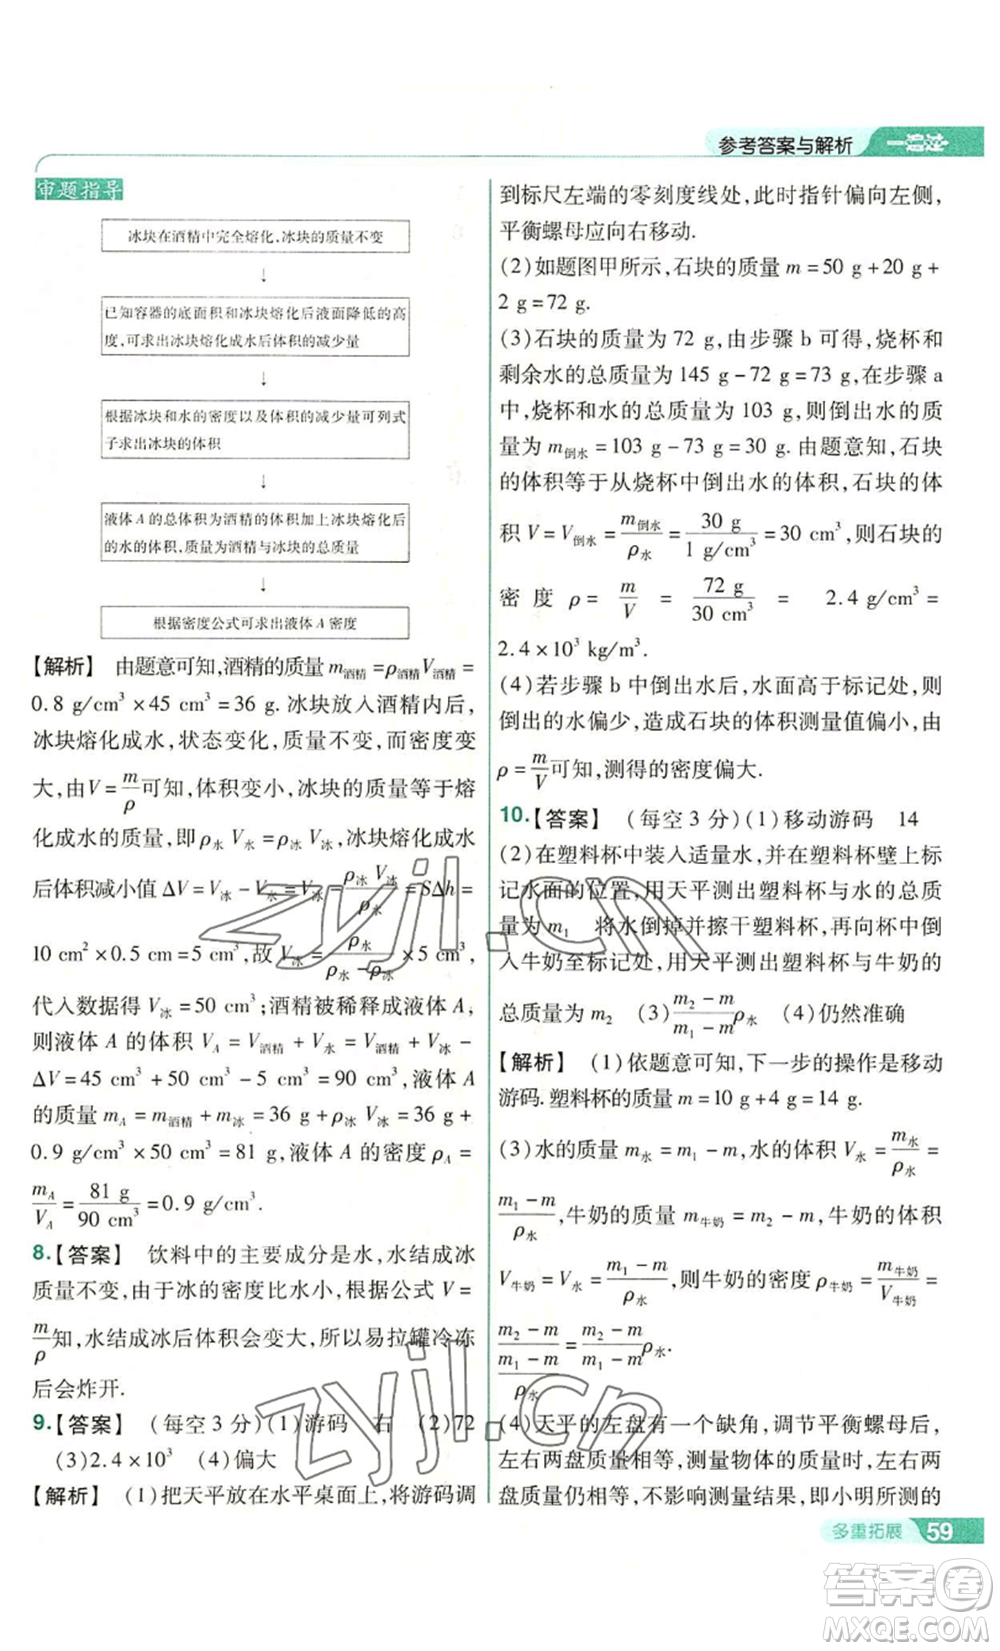 参考答案与解析 一遍过
审题指导
冰块在酒精中完全熔化,冰块的质量不变
已知容器的底面积和冰块熔化后液面降低的高
度,可求出冰块熔化成水后体积的减少量
根据冰块和水的密度以及体积的减少量可列式
子求出冰块的体积
液体 A 的总体积为酒精的体积加上冰块熔化后
的水的体积,质量为酒精与冰块的总质量
根据密度公式可求出液体 A 密度
【解析】 由题意可知,酒精的质量 m酒精 =ρ酒精V酒精 =
0.8 g/cm³ ×45 cm³ =36 g. 冰块放入酒精内后,
冰块熔化成水,状态变化,质量不变,而密度变
大,由 V= m/ρ 可知,体积变小,冰块的质量等于熔
化成水的质量,即 ρ水 V水 =ρ冰 V冰,冰块熔化成水
后体积减小值 ΔV = V冰 - V水 = V冰 - ρ冰 V冰/ρ水 = SΔh =
10 cm² ×0.5 cm =5 cm³,故 V冰 = ρ水/(ρ水 -ρ冰) ×5 cm³,
代入数据得 V冰 =50 cm³;酒精被稀释成液体 A,
则液体 A 的体积 VA = V酒精 + V水 = V酒精 + V冰 -
ΔV =45 cm³ +50 cm³ -5 cm³ =90 cm³,液体 A
的质量 mA = m酒精 + m冰 =36 g+ρ冰 V冰 =36 g+
0.9 g/cm³ ×50 cm³ =81 g. 液体 A 的密度 ρA =
mA/VA = 81 g/90 cm³ =0.9 g/cm³.
8.【答案】 饮料中的主要成分是水,水结成冰
质量不变,由于冰的密度比水小,根据公式 V =
m/ρ 知,水结成冰后体积会变大,所以易拉罐冷冻
后会炸开.
9.【答案】 (每空 3 分)(1)游码 右 (2)72
(3)2.4×10³ (4)偏大
【解析】 (1)把天平放在水平桌面上,将游码调
到标尺左端的零刻度线处,此时指针偏向左侧,
平衡螺母应向右移动.
(2)如题图甲所示,石块的质量 m =50 g+20 g+
2 g=72 g.
(3)石块的质量为 72 g,由步骤 b 可得,烧杯和
剩余水的总质量为 145 g-72 g=73 g,在步骤 a
中,烧杯和水的总质量为 103 g,则倒出水的质
量为 m倒水 =103 g-73 g=30 g. 由题意知,石块
的体积等于从烧杯中倒出水的体积,石块的体
积 V= V倒水 = m倒水/ρ水 = 30 g/1 g/cm³ =30 cm³,则石块的
密度 ρ = m/V = 72 g/30 cm³ = 2.4 g/cm³ =
2.4×10³ kg/m³.
(4)若步骤 b 中倒出水后,水面高于标记处,则
倒出的水偏少,造成石块的体积测量值偏小,由
ρ= m/V 可知,测得的密度偏大.
10.【答案】 (每空 3 分)(1)移动游码 14
(2)在塑料杯中装入适量水,并在塑料杯壁上标
记水面的位置,用天平测出塑料杯与水的总质
量为 m₁ 将水倒掉并擦干塑料杯,再向杯中倒
入牛奶至标记处,用天平测出塑料杯与牛奶的
总质量为 m₂ (3) (m₂-m)/(m₁-m) ρ水 (4)仍然准确
【解析】 (1)依题意可知,下一步的操作是移动
游码. 塑料杯的质量 m=10 g+4 g=14 g.
(3)水的质量 m水 = m₁ - m,水的体积 V水 = m水/ρ水 =
(m₁-m)/ρ水,牛奶的质量 m牛奶 = m₂ - m,牛奶的体积
V牛奶 = V水 = (m₁-m)/ρ水,则牛奶的密度 ρ牛奶 = m牛奶/V牛奶 =
(m₂-m)/((m₁-m)/ρ水) = (m₂-m)/(m₁-m) ρ水.
(4)天平的左盘有一个缺角,调节平衡螺母后,
天平仍能平衡,测量物体的质量时,左右两盘
盘质量仍相等,不影响测量结果,即小明所测的
多重拓展 59
zyjl.cn
zyjl.cn
答案圈
MXQE.COM